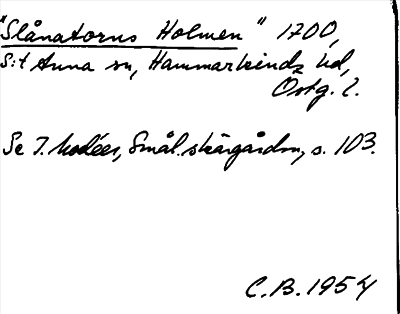 "Slånatorns Holmen" 1700,
S:t Anna sn, Hammarkinds hd,
Östg. l.
Se I. Modéer, Smål. skärgårdsn, s. 103.
C.B. 1954